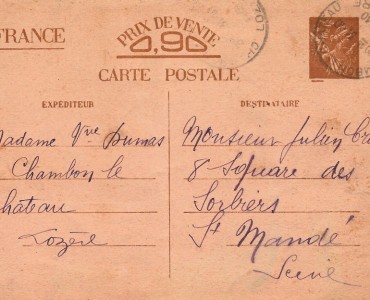 FRANCE
PRIX DE VENTE
0,90
CARTE POSTALE
EXPÉDITEUR
Madame Vve Dumas
Chambon le
Château
Lozère
DESTINATAIRE
Monsieur Julien
8 Square des
Sorbiers
St Mandé
Seine
LOT